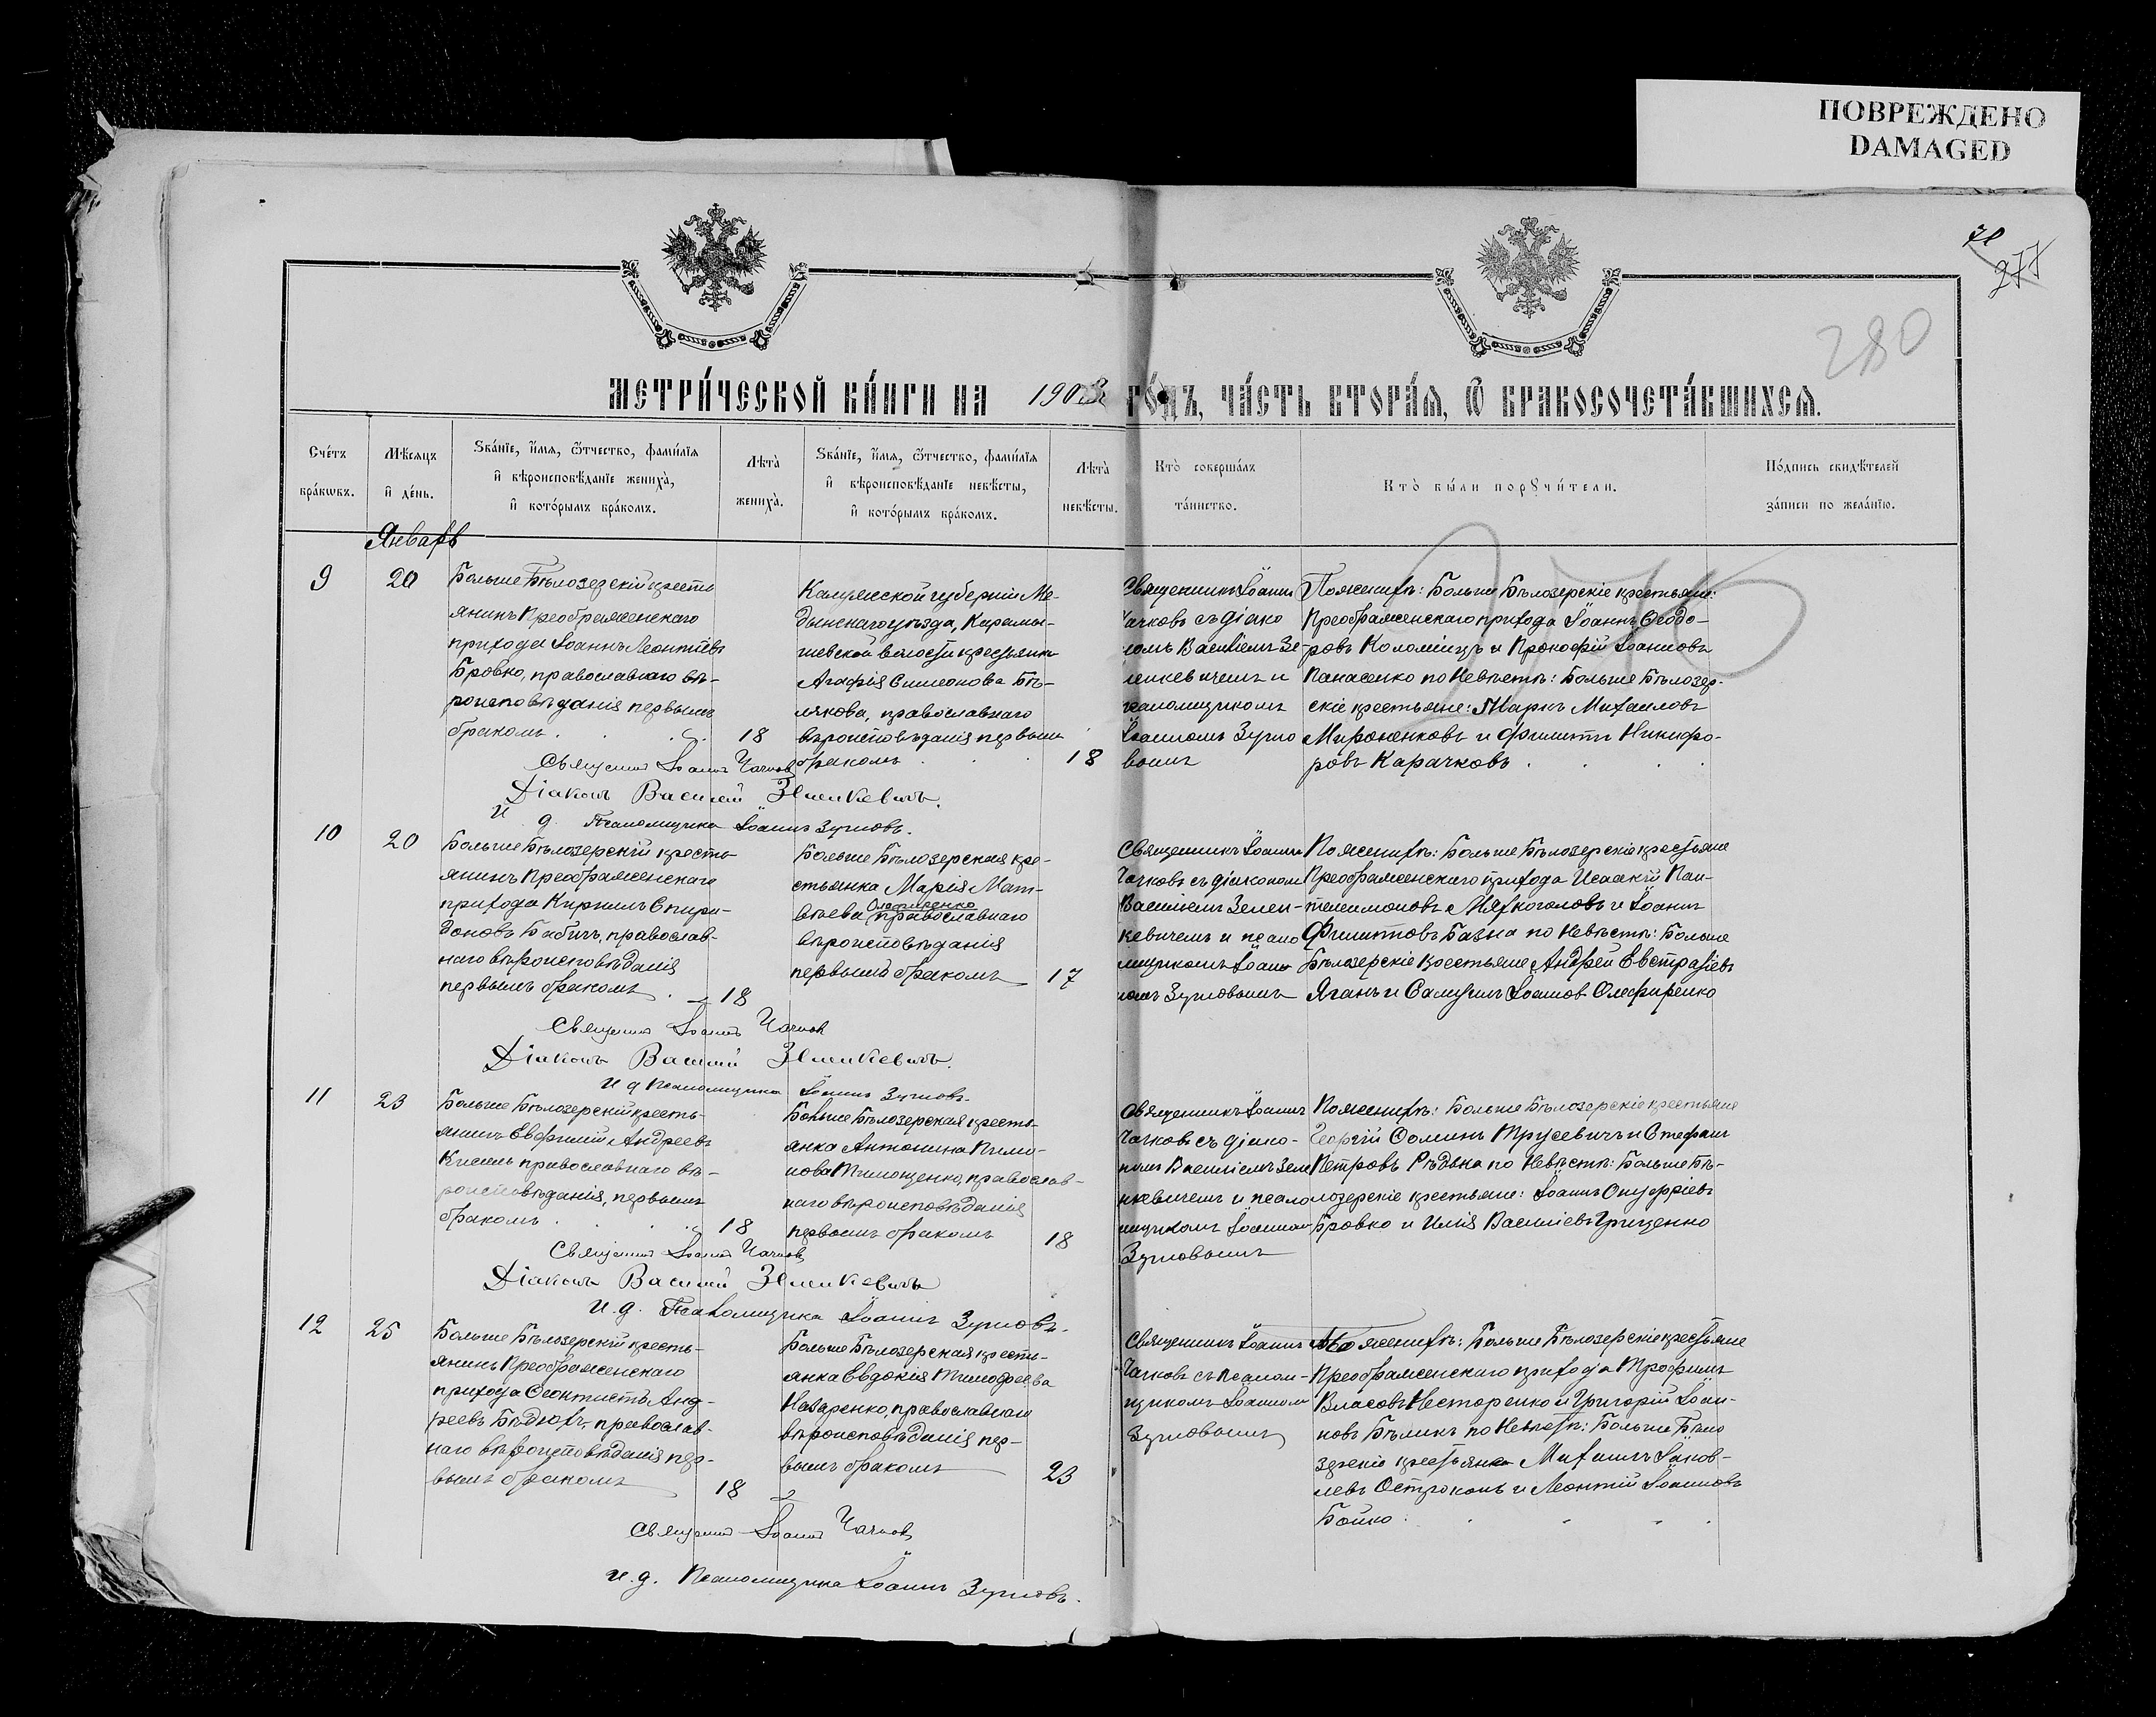 ПОВРЕЖДЕНО
DAMAGED
277
280
МЕТРИ́ЧЕСКОЙ КНИ́ГИ НА 1903 ГО́ДЪ, ЧА́СТЬ ВТОРА́Я, Ѿ БРАКОСОЧЕТА́ВШИХСЯ.
Сче́тъ
бра́кѡвъ.
Мѣ́сяцъ
и҆ де́нь.
Зва́нїе, и҆́мя, ѻ҆́тчество, фами́лїя
и҆ вѣроисповѣ́данїе жениха̀,
и҆ кото́рымъ бра́комъ.
Лѣ́та
жениха̀.
Зва́нїе, и҆́мя, ѻ҆́тчество, фами́лїя
и҆ вѣроисповѣ́данїе невѣ́сты,
и҆ кото́рымъ бра́комъ.
Лѣ́та
невѣ́сты.
Кто̀ соверша́лъ
та́инство.
Кто̀ бы́ли порꙋчи́тели.
По́дпись свидѣ́телей
за́писи по жела́нїю.
Январь
9
20
Больше Бѣлозерскій кресть
янинъ Преображенскаго
прихода Іоаннъ Леонтіевъ
Бровко, православнаго вѣ-
роисповѣданія первымъ
бракомъ 18
Калужской губерніи Ме-
дынскаго уѣзда, Карамы-
шевской волости крестьянка
Агафія Симеонова Бѣ-
лякова, православнаго
вѣроисповѣданія первымъ
бракомъ 18
Священникъ Іоаннъ
Чачковъ съ діако
номъ Василіемъ Зе
ленкевичемъ и
псаломщикомъ
Іоанномъ Зуно
вымъ
По женихѣ: Больше Бѣлозерскіе крестьяне:
Преображенскаго прихода Іоаннъ Ѳеодо-
ровъ Коломіецъ и Прокофій Іоанновъ
Панасенко по Невѣстѣ: Больше Бѣлозер-
скіе крестьяне: Маркъ Михаиловъ
Мироненковъ и Филиппъ Никифо-
ровъ Карачковъ
Священникъ Іоаннъ Чачковъ
Діаконъ Василій Зеленкевичъ.
И. д. Псаломщика Іоаннъ Зуновъ.
10
20
Больше Бѣлозерскій кресть
янинъ Преображенскаго
прихода Кириллъ Спири-
доновъ Бабичъ, православ-
наго вѣроисповѣданія
первымъ бракомъ 18
Больше Бѣлозерская кре-
стьянка Марія Мат-
Олефиренко
вѣева православнаго
вѣроисповѣданія
первымъ бракомъ 17
Священникъ Іоаннъ
Чачковъ съ діакономъ
Василіемъ Зелен-
кевичемъ и псало
мщикомъ Іоан
номъ Зуновымъ
По женихѣ: Больше Бѣлозерскіе крестьяне
Преображенскаго прихода Исаакій Пан-
телеимоновъ Мягкоголовъ и Іоаннъ
Филипповъ Базна по Невѣстѣ: Больше
Бѣлозерскіе крестьяне Андрей Евстафіевъ
Яганъ и Самуилъ Іоанновъ Олефиренко
Священникъ Іоаннъ Чачковъ
Діаконъ Василій Зеленкевичъ.
И д Псаломщика Іоаннъ Зуновъ.
11
23
Больше Бѣлозерскій кресть-
янинъ Евфимій Андреевъ
Кисель православнаго вѣ-
роисповѣданія, первымъ
бракомъ 18
Больше Бѣлозерская кресть-
янка Антонина Пиме-
нова Тимощенко, православ-
наго вѣроисповѣданія
первымъ бракомъ 18
Священникъ Іоаннъ
Чачковъ съ діако-
номъ Василіемъ Зеле
нкевичемъ и псало
мщикомъ Іоанномъ
Зуновымъ
По женихѣ: Больше Бѣлозерскіе крестьяне
Георгій Ѳоминъ Трусевичъ и Стефанъ
Петровъ Рѣдька по Невѣстѣ: Больше Бѣ-
лозерскіе крестьяне: Іоаннъ Онуфріевъ
Бровко и Илія Василіевъ Грищенко
Священникъ Іоаннъ Чачковъ
Діаконъ Василій Зеленкевичъ
И. д. Псаломщика Іоаннъ Зуновъ.
12
25
Больше Бѣлозерскій кресть-
янинъ Преображенскаго
прихода Ѳеоктистъ Анд-
реевъ Бѣдюхъ, православ-
наго вѣроисповѣданія пер-
вымъ бракомъ 18
Больше Бѣлозерская кресть-
янка Евдокія Тимофеева
Назаренко, православнаго
вѣроисповѣданія пер-
вымъ бракомъ 23
Священникъ Іоаннъ
Чачковъ съ псалом-
щикомъ Іоанномъ
Зуновымъ
По женихѣ: Больше Бѣлозерскіе крестьяне
Преображенскаго прихода Трофимъ
Власовъ Нестеренко и Григорій Іоан-
новъ Бѣликъ по Невѣстѣ: Больше Бѣло
зерскіе крестьяне Михаилъ Іаков-
левъ Остроконь и Леонтій Іоанновъ
Бойко
Священникъ Іоаннъ Чачковъ
И. д. Псаломщика Іоаннъ Зуновъ.